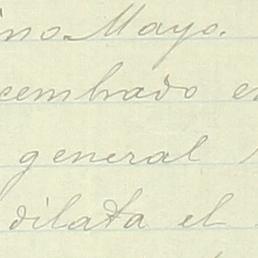 ino Mayo.
cembrado e
general
dilata el